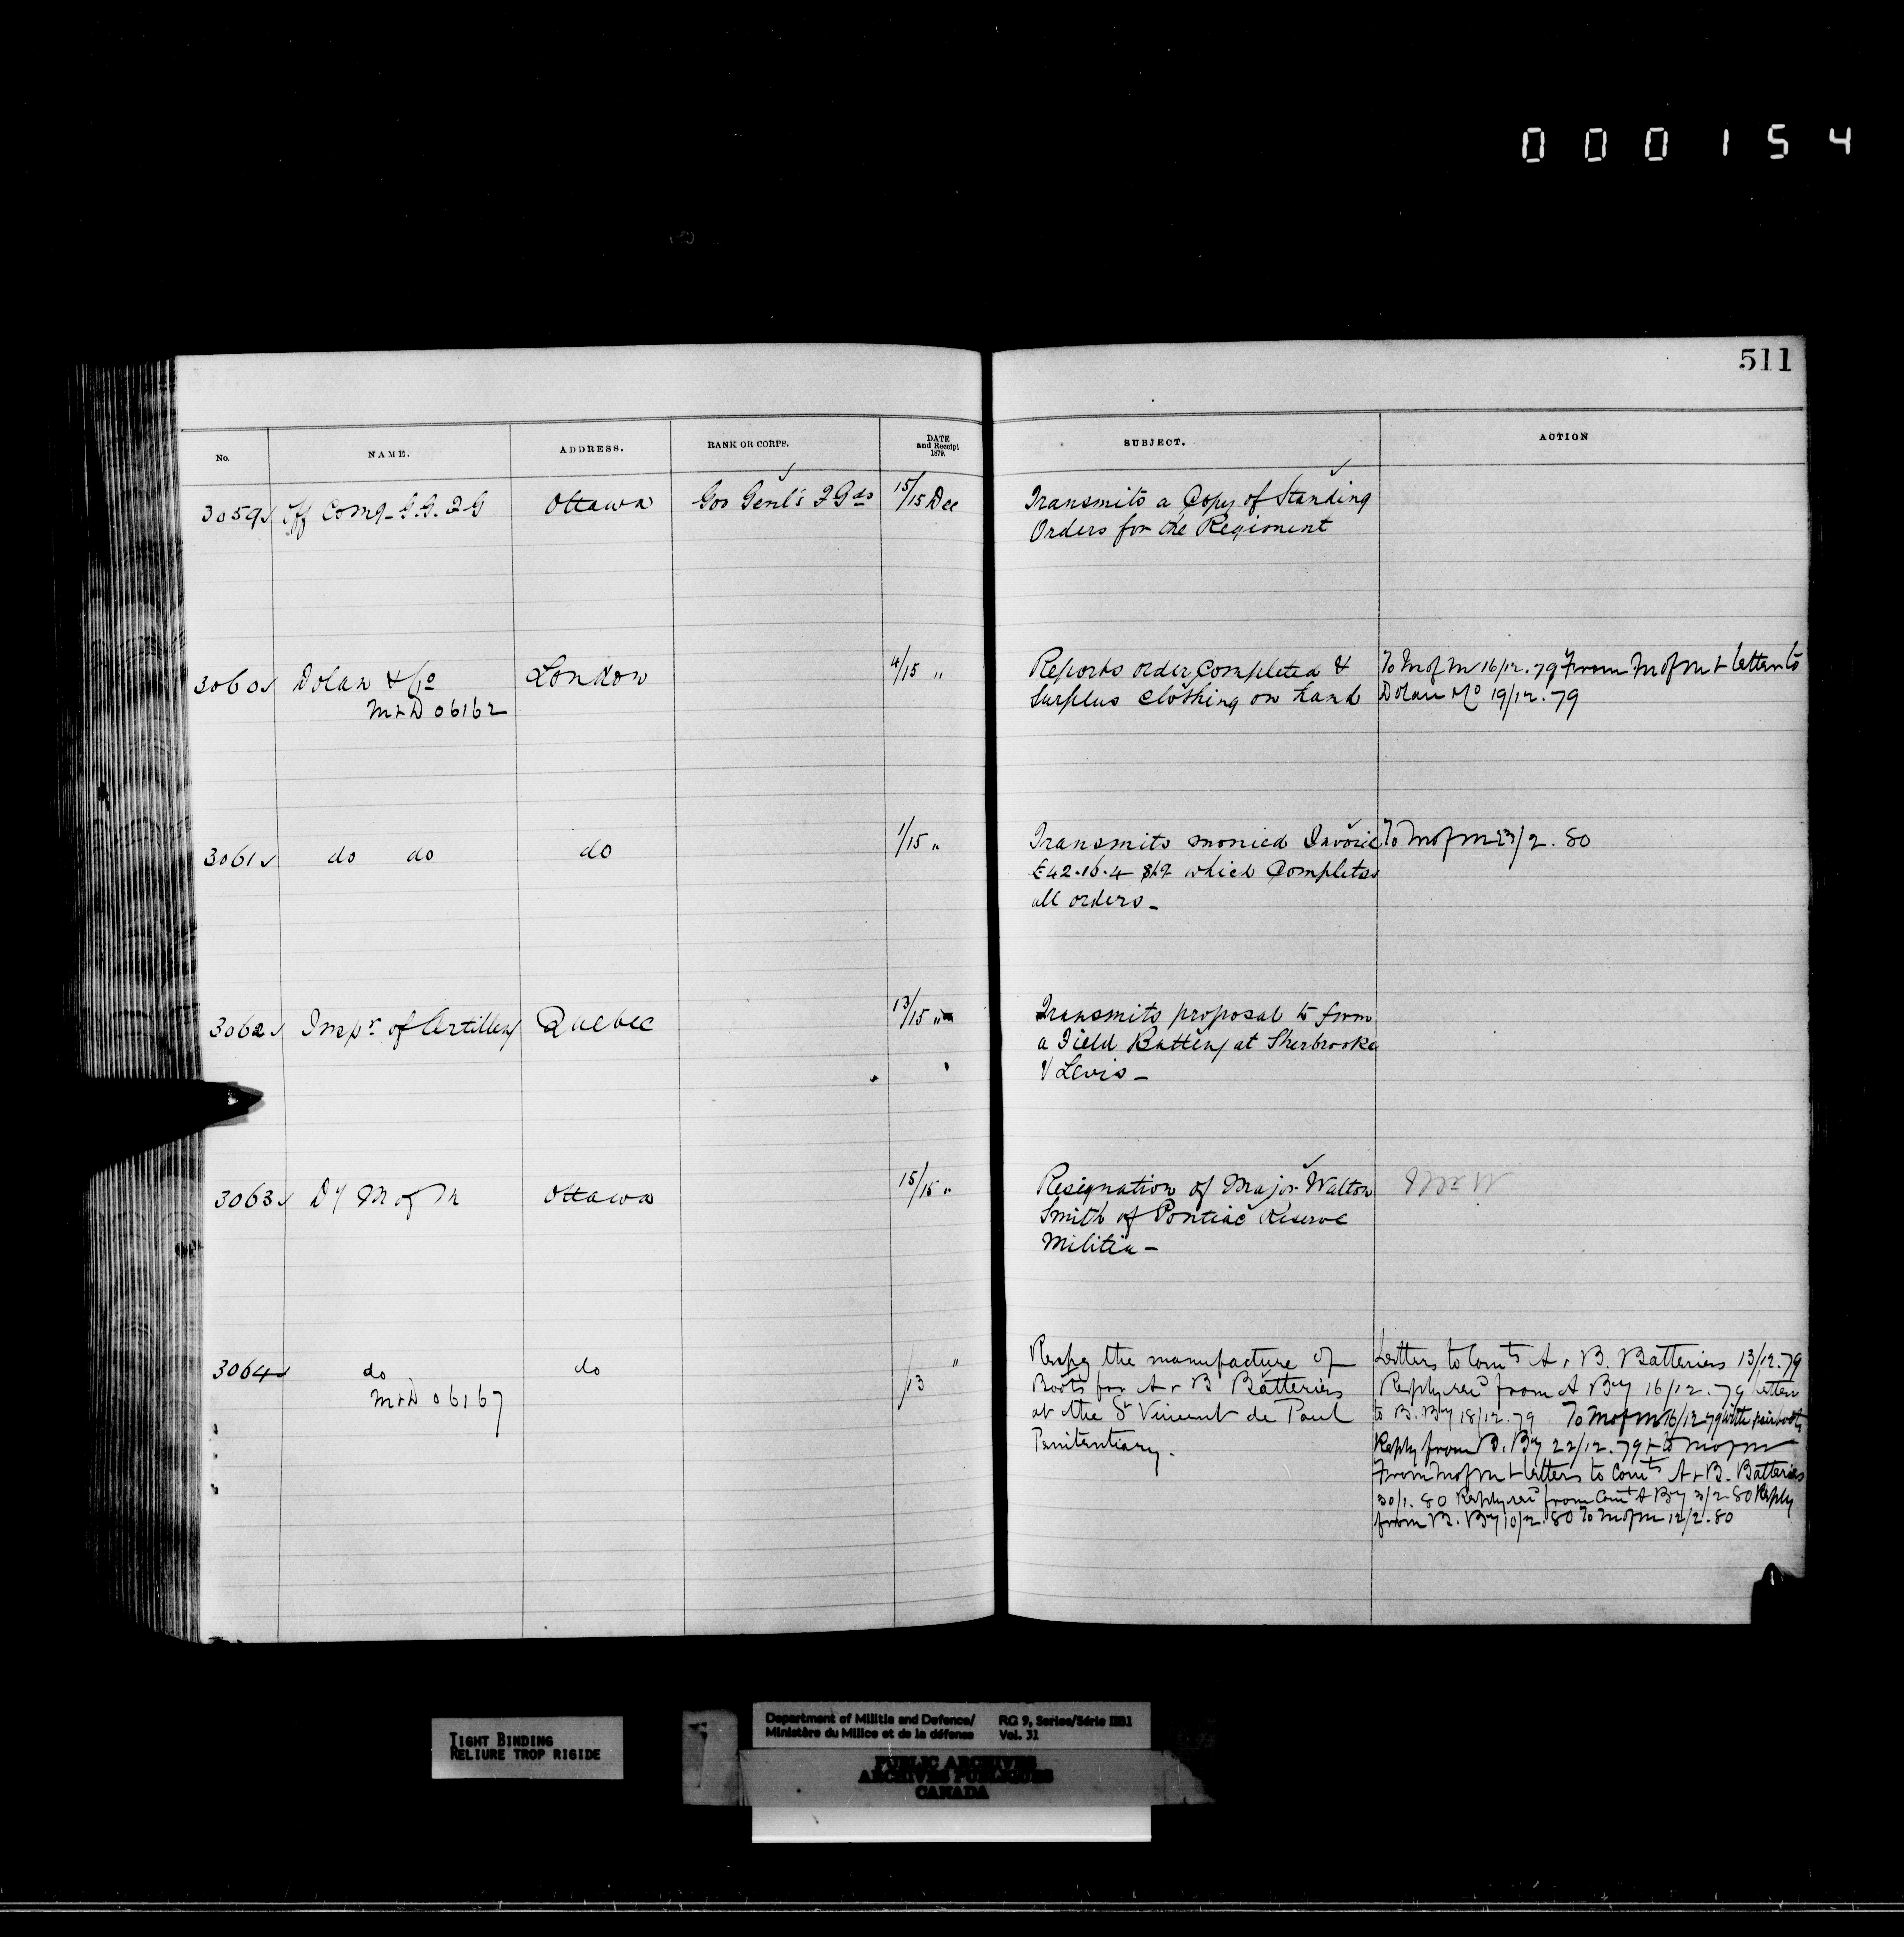 000154
511
No. NAME. ADDRESS. RANK OR CORPS. DATE and Receipt 1879. SUBJECT. ACTION
3059 Off Comg. G.G. F.G Ottawa Gov Genl's F Gds 15/15 Dec Transmits a Copy of Standing
Orders for the Regiment
3060 Dolan & Co London 4/15 " Reports order Completed & To M of M 16/12.79 From M of M & letter to
M&D 06162 Surplus Clothing on hand Dolan & Co 19/12.79
3061 do do do 1/15 " Transmits monied Invoice To M of M 23/2.80
£42.16.4 which Completes
all orders_
3062 Inspr of Artillery Quebec 13/15 " Transmits proposal to form
a Field Battery at Sherbrooke
& Levis_
3063 Dy M of M Ottawa 15/15 " Resignation of Major Walton
Smith of Pontiac Reserve
Militia_
3064 do do /13 " Respg the manufacture of Letters to Comts A & B. Batteries 13/12.79
M&D 06167 Boots for A & B Batteries Reply recd from A By 16/12.79 letter
at the St Vincent de Paul to B. By 18/12.79 To M of M 16/12 79 with pair boots
Penitentiary. Reply from B. By 22/12.79 & to M of M
From M of M & letters to Comts A & B. Batteries
30/1.80 Reply recd from Comt A By 3/2.80 Reply
from B. By 10/2.80 To M of M 12/2.80
TIGHT BINDING
RELIURE TROP RIGIDE
Department of Militia and Defence/ RG 9, Series/Série IIB1
Ministère du Milice et de la défense Vol. 31
PUBLIC ARCHIVES
ARCHIVES PUBLIQUES
CANADA